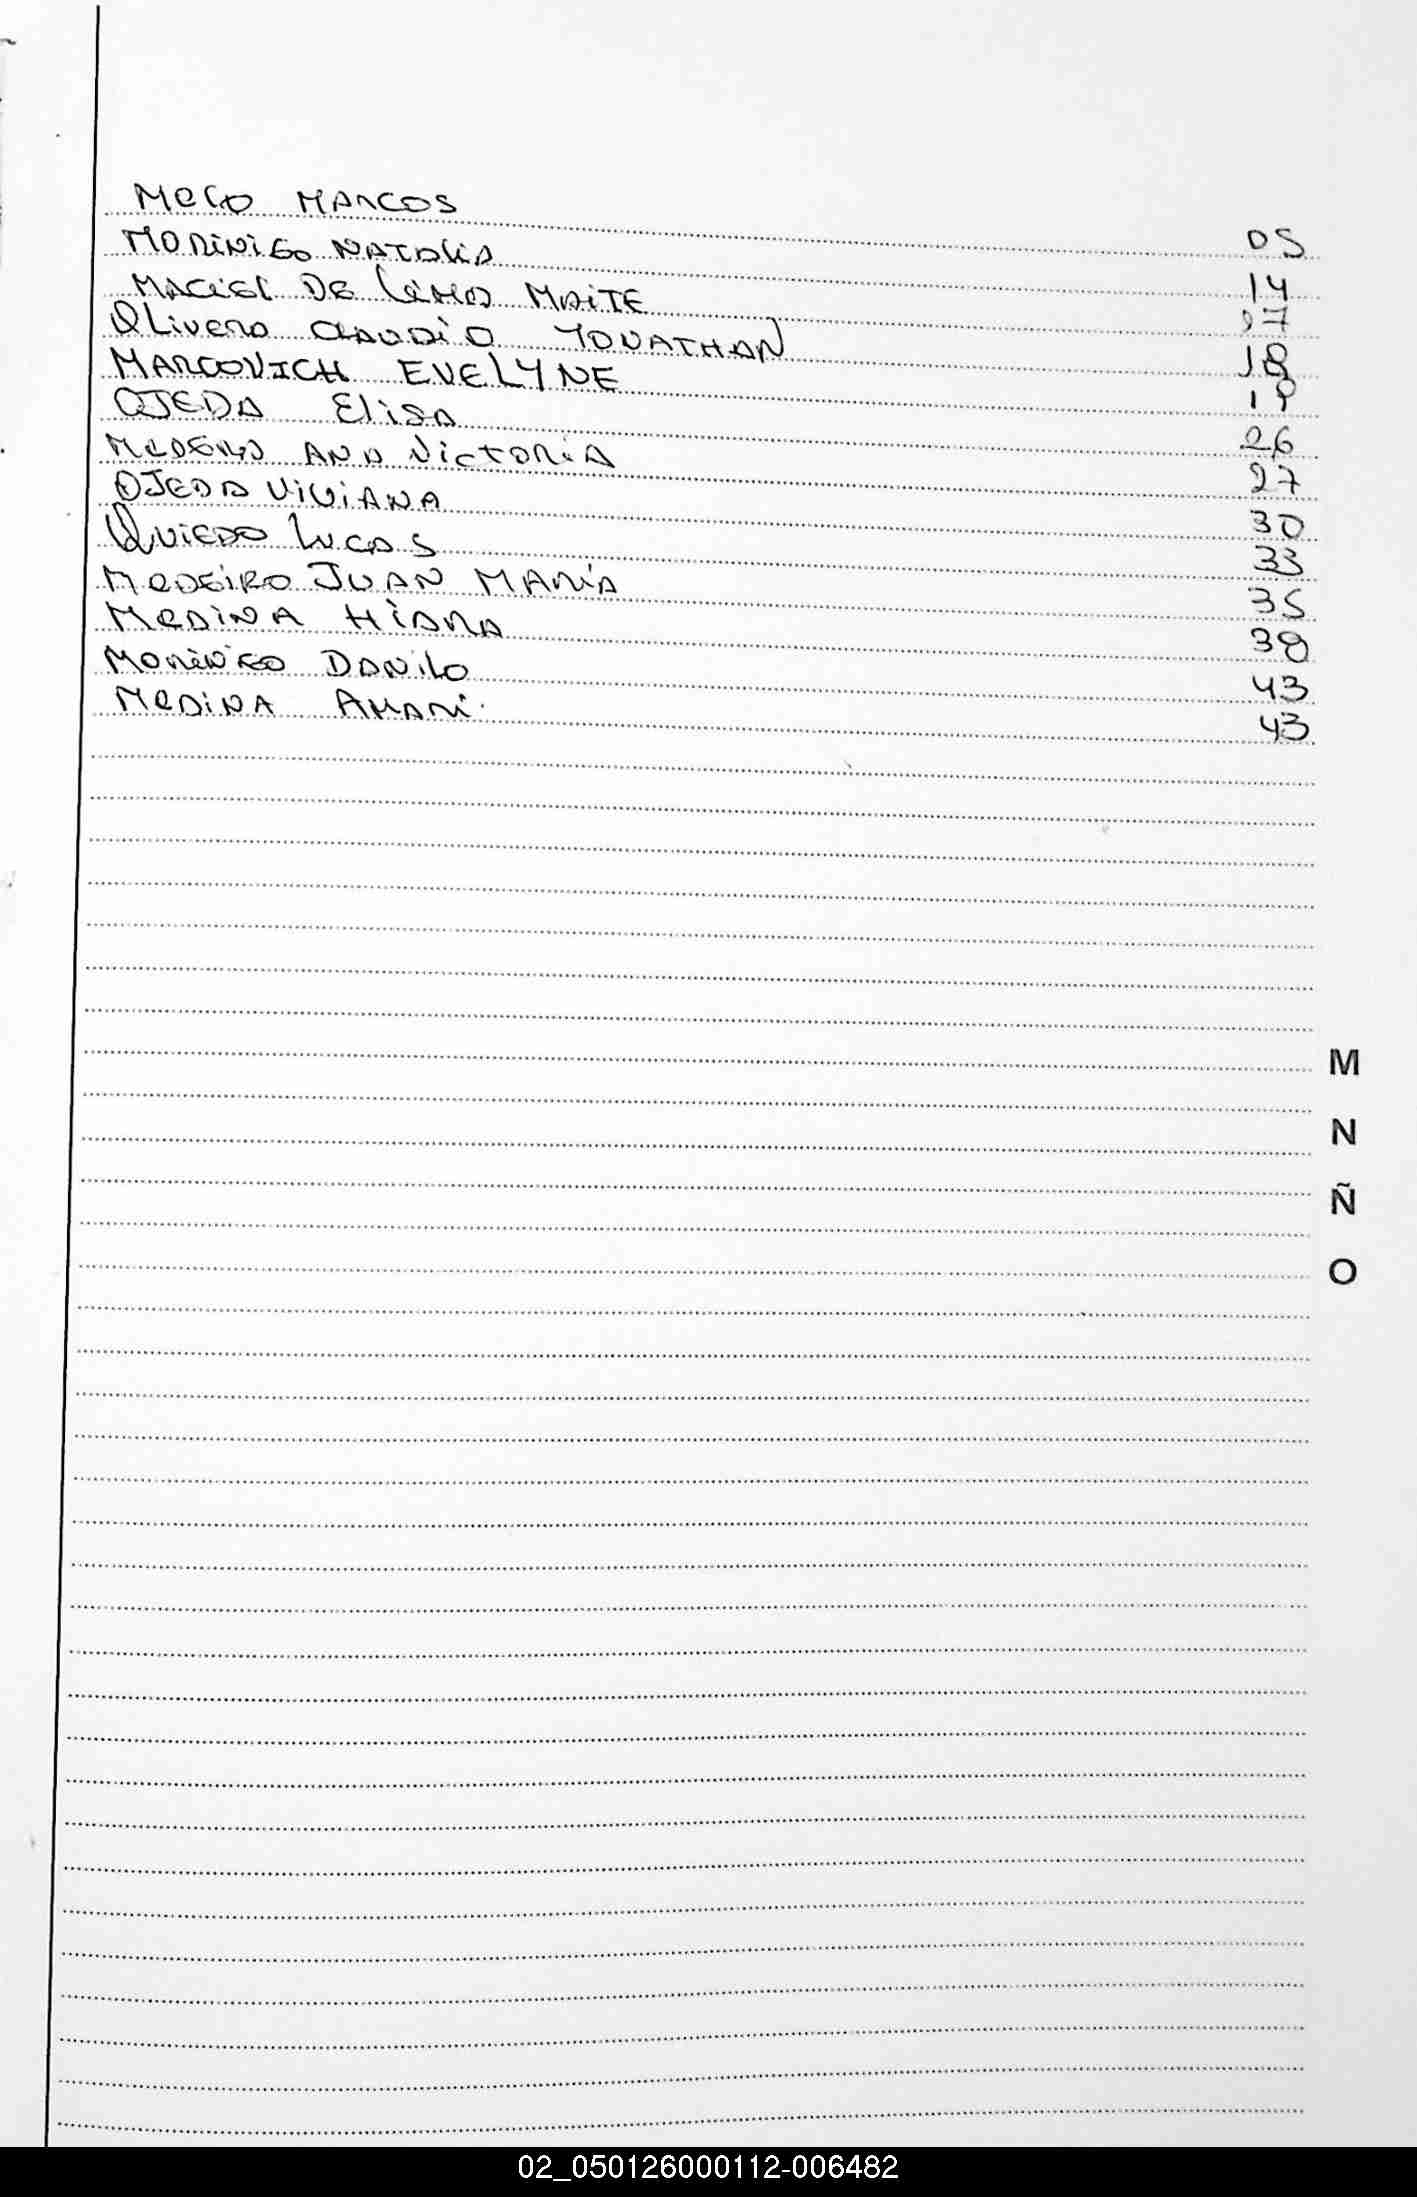 Melo MARCOS 05
MORINIGO NATALIA 14
MACIEL DE LIMA MAITE 17
OLIVERA CLAUDIO JONATHAN 18
MARCOVICH EVELYNE 19
OJEDA Elisa 26
MEDEIRO ANA VICTORIA 27
OJEDA VIVIANA 30
OVIEDO LUCAS 33
MEDEIRO JUAN MARIA 35
MEDINA HIARA 38
MORINIGO DANILO 43
MEDINA AMARI 43
M
N
Ñ
O
02_050126000112-006482